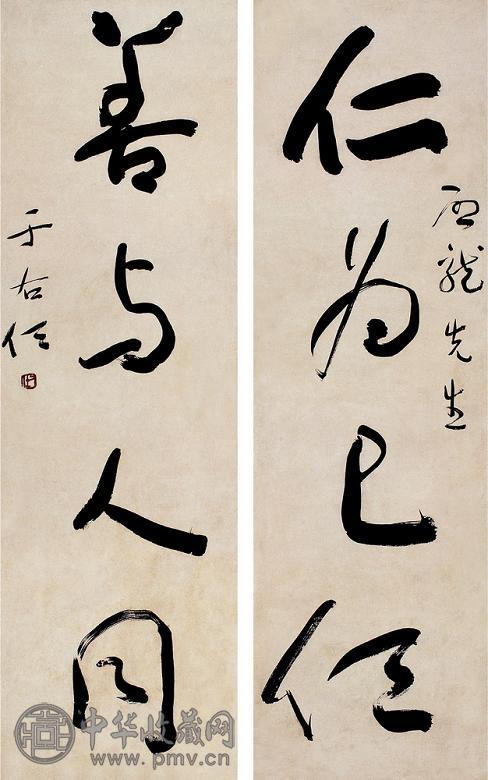 龍先生
仁為己任
善與人同
于右任
中华收藏网
www.pmv.cn